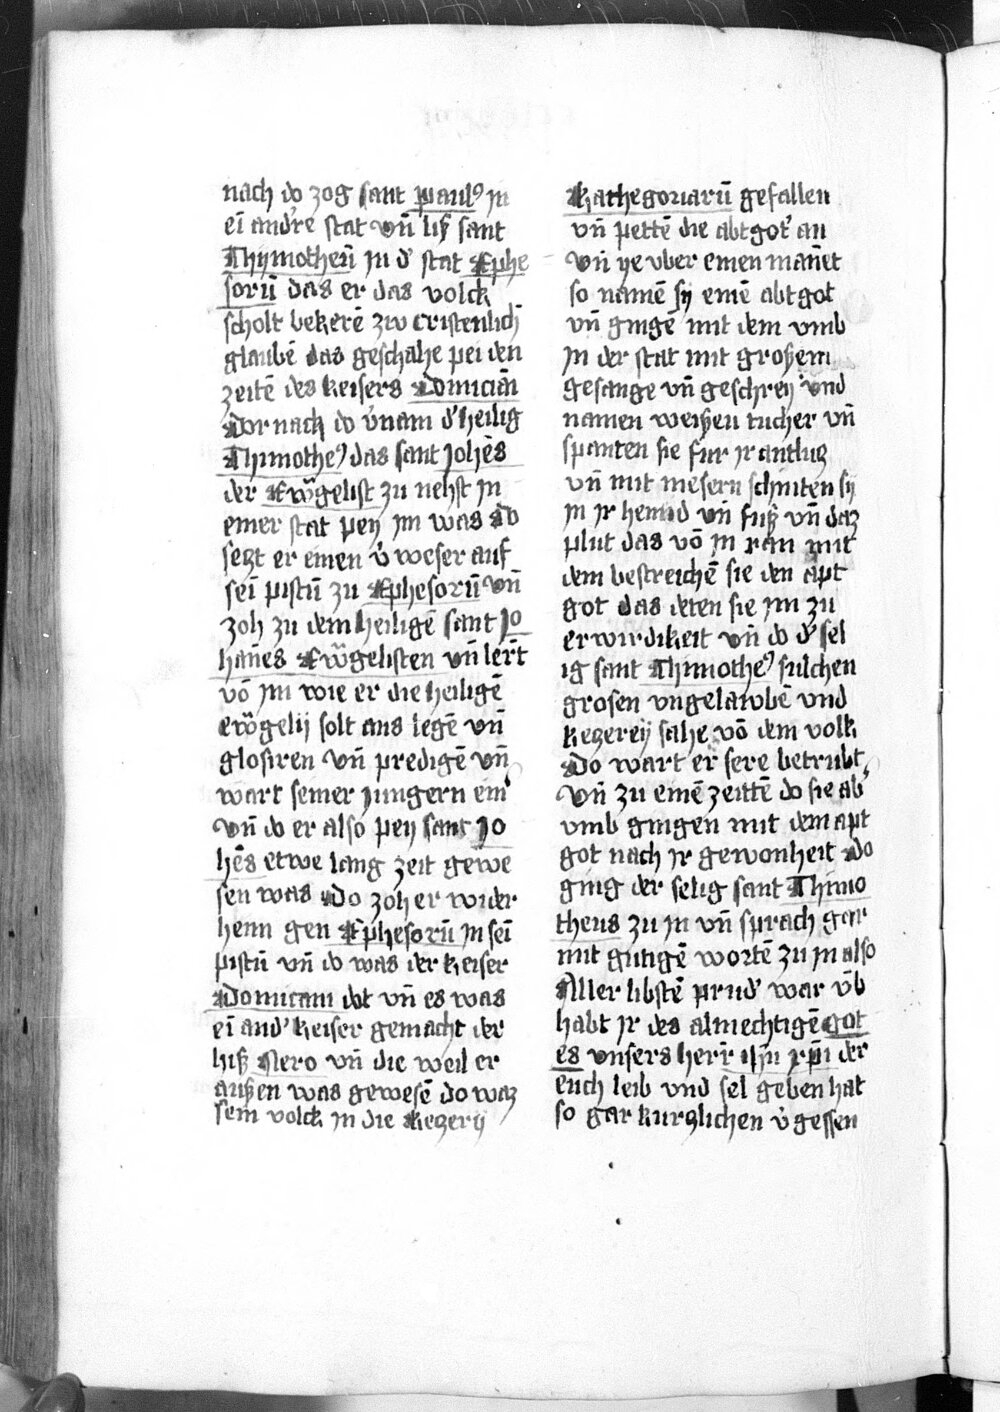 nach do zog sant paulꝰ in
ei᷑ and’re stat vn̄ liß sant
Thymotheū jn d’ stat Ephe
sorū das er das volck
scholt bekerē zw cristenlich
glaubē das geschahe pei den
zeitē des keisers Domiciani
Dornach do v’nam d’ heilig
Thimotheꝰ das sant Johēs
der Ewāgelist zu nehst in
einer stat pey jm was do
seczt er einen v’weser auf
sei᷑ pistū zu Ephesorū vn̄
zoh zu dem heiligē sant Jo
han̄es Ewāgelisten vn̄ lern̄t
vō jm wie er die heiligē
ewāgelij solt aus legē vn̄
glosiren vn̄ predigē vn̄
wart seiner jungern ein’
vn̄ do er also pey sant Jo
hēs etwe lang zeit gewe
sen was do zoh er wider
henn gen Ephesorū jn sei᷑
pistū vn̄ do was der keiser
Domicani dot vn̄ es was
ei᷑ and’ keiser gemacht der
hiß Nero vn̄ die weil er
außen was gewesē do waz
sein volck jn die keczerij
Kathegoriarū gefallen
vn̄ pettē die abtgot’ an
vn̄ ye vber einen manet
so namē sy einē abtgot
vn̄ gingē mit dem vmb
jn der stat mit großem
gesange vn̄ geschrey vnd
namen weißen tucher vn̄
spanten sie fur jr antlucz
vn̄ mit mesern schniten sy
jn jr hennd vn̄ fuß vn̄ daz
plut das vō jn ran mit
dem bestreichē sie den apt
got das deten sie jm zu
erwirdikeit vn̄ do d’ sel
ig sant Thimotheꝰ sulchen
grosen vngelawbē vnd
keczerey sahe vō dem volk
Do wart er sere betrubt
vn̄ zu einē zeittē do sie ab’
vmb gingen mit dem apt
got nach jr gewonheit do
ging der selig sant Thimo
theus zu in vn̄ sprach gar
mit gutigē wortē zu jn also
Aller libstē prud’ war v̄b
habt jr des almechtigē got
es vnsers herr̄ ih̄u xp̄i der
euch leib vnd sel geben hat
so gar kurczlichen v’gessen